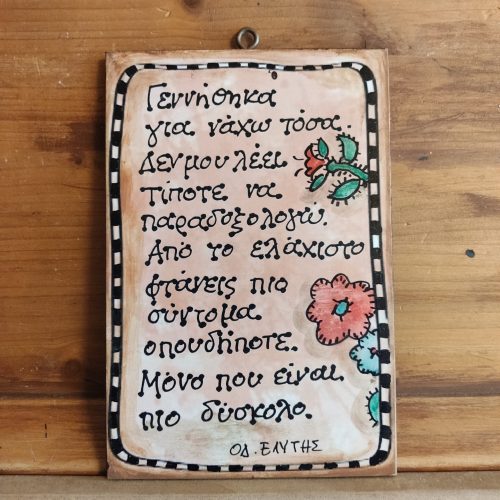 Γεννήθηκα
για νάχω τόσα.
Δεν μου λέει
τίποτε να
παραδοξολογώ.
Από το ελάχιστο
φτάνεις πιο
σύντομα
οπουδήποτε.
Μόνο που είναι
πιο δύσκολο.
ΟΔ. ΕΛΥΤΗΣ